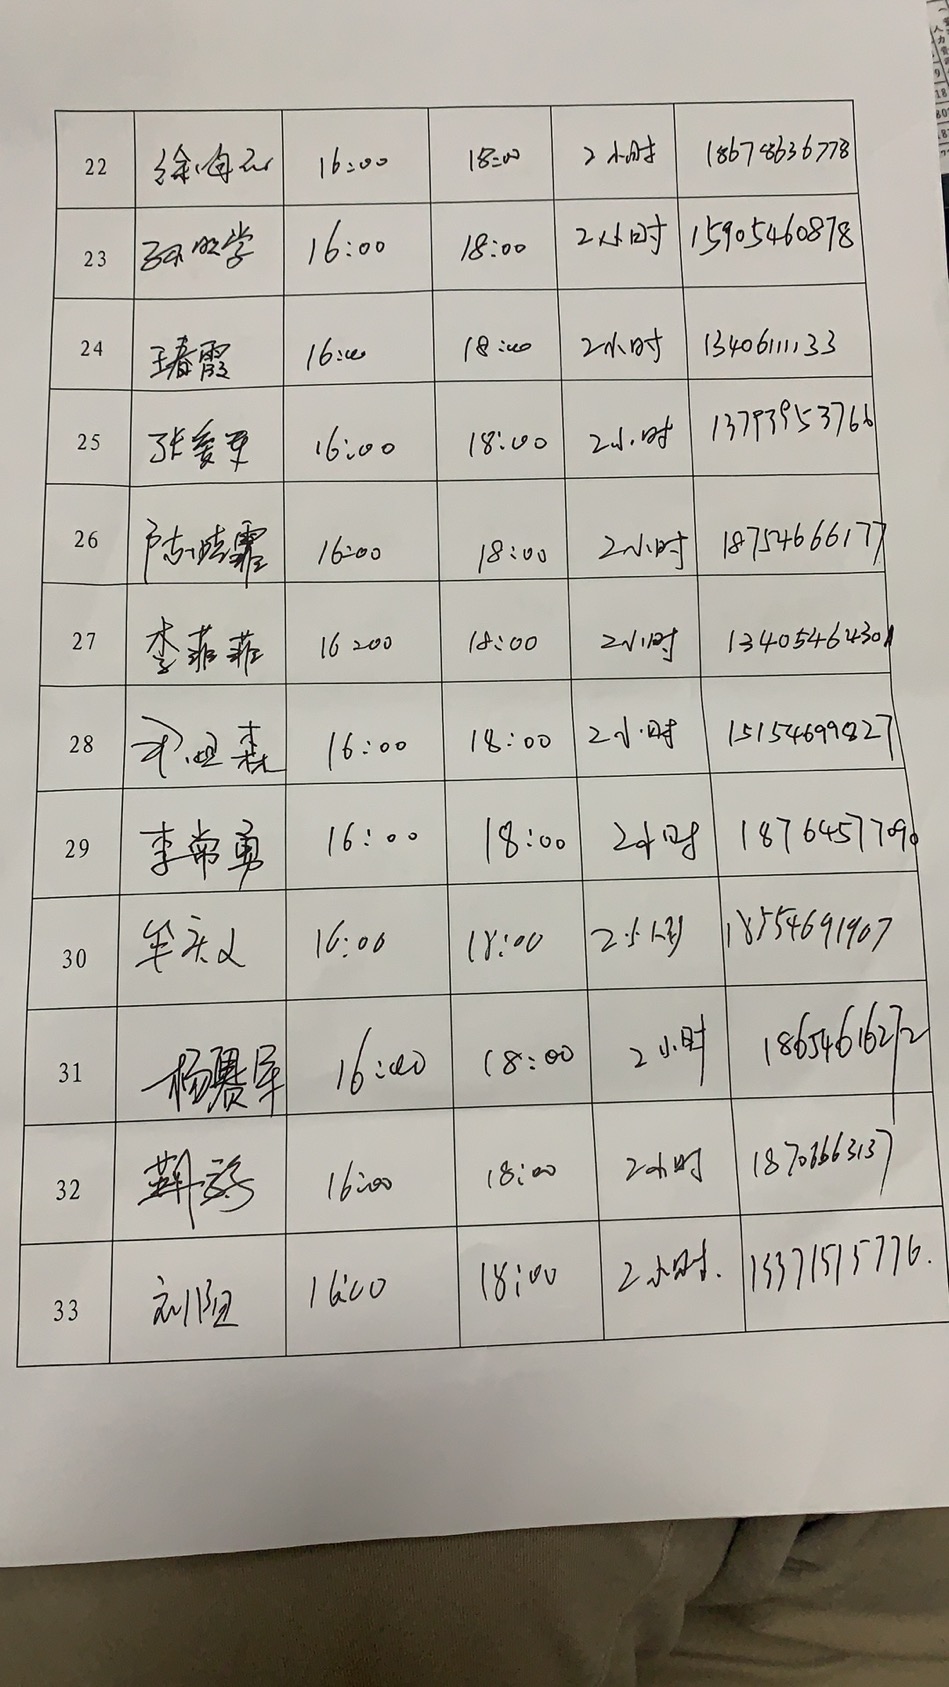 22 16:00 18:00 2小时 18678636778
23 孙明学 16:00 18:00 2小时 15905460878
24 王春霞 16:00 18:00 2小时 13406111133
25 16:00 18:00 2小时 13793953766
26 陈晓霏 16:00 18:00 2小时 18754666177
27 李菲菲 16:00 18:00 2小时 13405464301
28 森 16:00 18:00 2小时 15154699827
29 李常勇 16:00 18:00 2小时 18764577090
30 牟庆义 16:00 18:00 2小时 18554691907
31 杨赛军 16:00 18:00 2小时 18654616272
32 16:00 18:00 2小时 18706663137
33 刘阳 16:00 18:00 2小时. 15371515776.